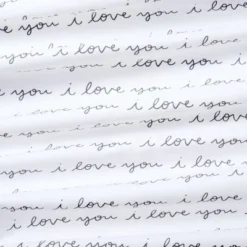 love you i love you i
you i love you i love
love you i love you i
you i love you i love you
i love you i love you
love you i love you i love
you i love you i love
i love you i love you
i love you i love you
you i love you i love
i love you i love you
love you i love you